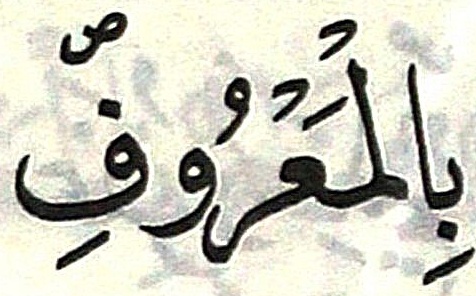 بِالْمَعْرُوفِ ص